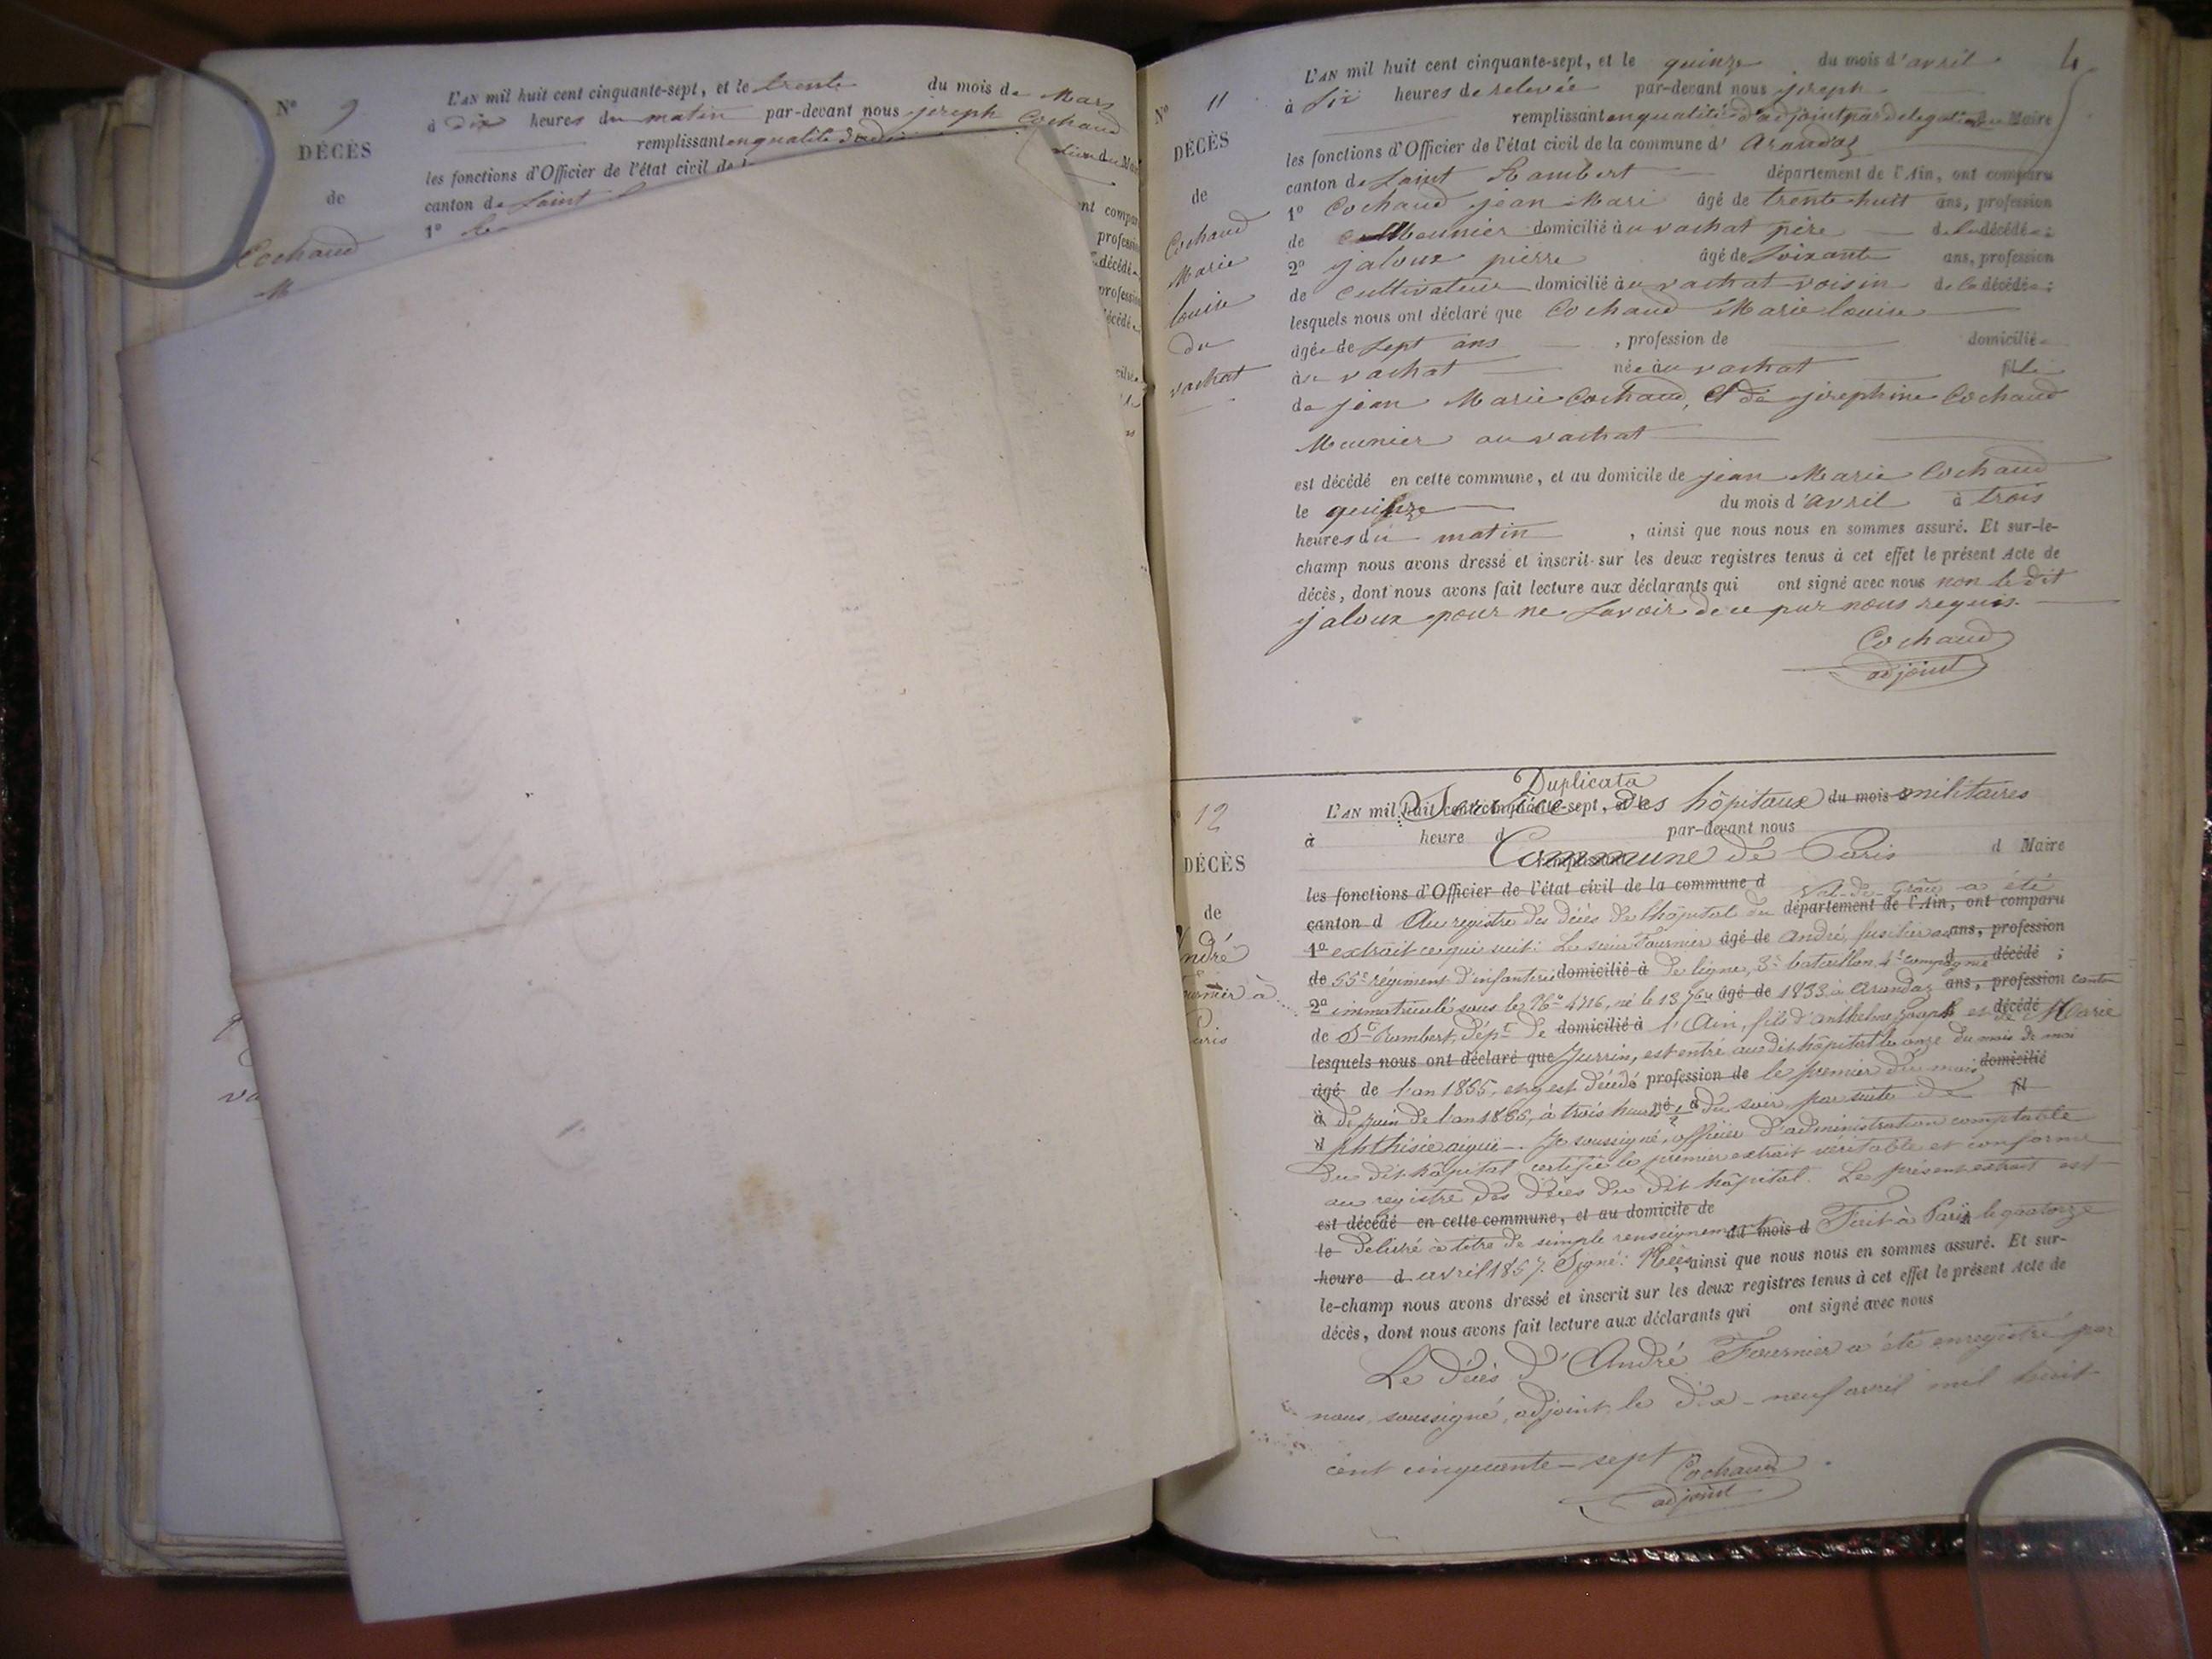 N° 9
DÉCÈS
de
Cochaud
M
L'AN mil huit cent cinquante-sept, et le trente du mois de Mars
à dix heures du matin par-devant nous joseph Cochaud
remplissant en qualité
les fonctions d'Officier de l'état civil de
canton de Saint
1°
4
N° 11
DÉCÈS
de
Cochaud
Marie
louise
du
vachat
L'AN mil huit cent cinquante-sept, et le quinze du mois d'avril
à six heures de relevée par-devant nous joseph
remplissant en qualité d'adjoint par delegation du Maire
les fonctions d'Officier de l'état civil de la commune d'Arandas
canton de Saint Rambert département de l'Ain, ont comparu
1° Cochaud jean Mari âgé de trente huit ans, profession
de Meunier domicilié au vachat père de la décédée;
2° jaloux pierre âgé de soixante ans, profession
de cultivateur domicilié au vachat voisin de la décédée;
lesquels nous ont déclaré que Cochaud Marie louise
âgée de sept ans, profession de domicilié
au vachat née au vachat fille
de jean Marie Cochaud, et de josephine Cochaud
Meunier au vachat
est décédé en cette commune, et au domicile de jean Marie Cochaud
le quinze du mois d'avril à trois
heures du matin, ainsi que nous nous en sommes assuré. Et sur-le-
champ nous avons dressé et inscrit sur les deux registres tenus à cet effet le présent Acte de
décès, dont nous avons fait lecture aux déclarants qui ont signé avec nous non le dit
jaloux pour ne savoir de ce par nous requis.
Cochaud
adjoint
12
DÉCÈS
de
André
Fournier à
Paris
Duplicata
L'AN mil huit cent cinquante-sept, et le Service des hôpitaux du mois militaires
à heure d par-devant nous
remplissant Commune de Paris d Maire
les fonctions d'Officier de l'état civil de la commune d Val-de-Grâce a été
canton d Au registre des décès de l'hôpital du département de l'Ain, ont comparu
1° extrait ce qui suit: Le sieur Fournier âgé de André, fusilier au ans, profession
de 55e régiment d'infanterie domicilié à de ligne, 3e bataillon 4e compagnie d décédé;
2° immatriculé sous le No 4716, né le 13 7bre âgé de 1833 à Arandas ans, profession canton
de St Rambert, dépt de domicilié à l'Ain, fils d'anthelme joseph et de décédé Marie
lesquels nous ont déclaré que Jurrin, est entré au dit hôpital le onze du mois de mai
âgé de l'an 1855, et y est décédé profession de le premier du mois domicilié
à de juin de l'an 1855, à trois heures né 1/2 à du soir, par suite de fil
d phthisie aiguë. Je soussigné, officier d'administration comptable
du dit hôpital certifie le premier extrait véritable et conforme
au registre des décès du dit hôpital. Le présent extrait est
est décédé en cette commune, et au domicile de
le délivré à titre de simple renseignement du mois d Fait à Paris le quatorze
heure d avril 1857. Signé: ainsi que nous nous en sommes assuré. Et sur-
le-champ nous avons dressé et inscrit sur les deux registres tenus à cet effet le présent Acte de
décès, dont nous avons fait lecture aux déclarants qui ont signé avec nous
Le décès d'André Fournier a été enregistré par
nous, soussigné, adjoint le dix-neuf avril mil huit
cent cinquante-sept Cochaud
adjoint